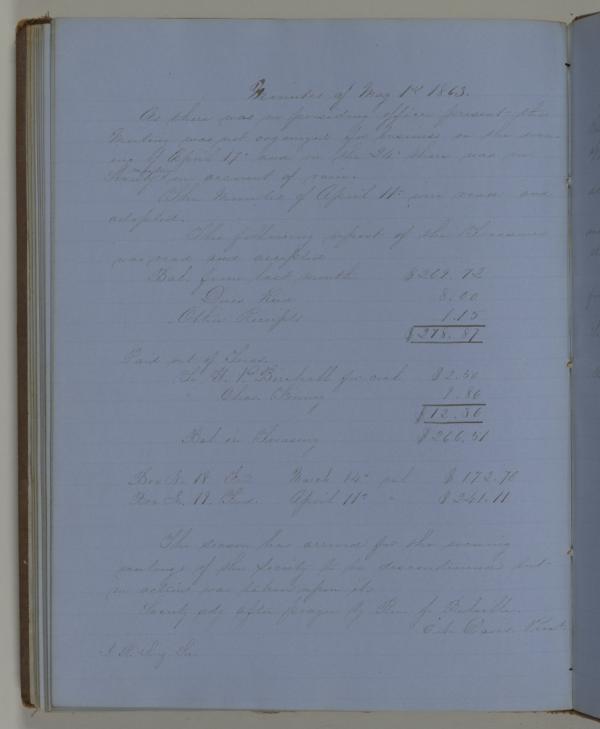 Minutes of May 1st 1863.
As there was no presiding officer present the
Meeting was not organized for business on the even-
ing of April 17" and on the 24" there was no
meeting
Society on account of rain.
The Minutes of April 11" were read and
adopted.
The following report of the Treasurer
was read and accepted
Bal. from last month $269.72
Dues Recd 8.00
Other Receipts 1.15
$278.87
Paid out of Treas.
To W. for coal $2.50
" Chas. 9.86
$12.36
Bal in Treasury $266.51
Box No. 18 March 14" $172.70
Box No. 19 April 11" " $241.11
The season has arrived for the evening
meetings of the Society to be discontinued but
no action was taken upon it.
Society adj. after prayer by Rev. J.
Prest.